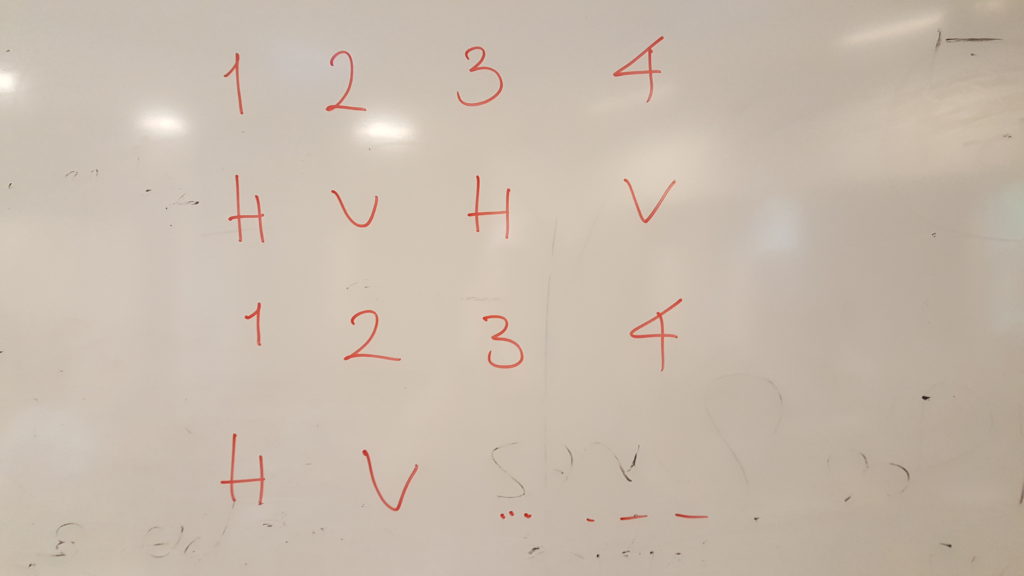 1 2 3 4
H V H V
1 2 3 4
H V ... . _ _